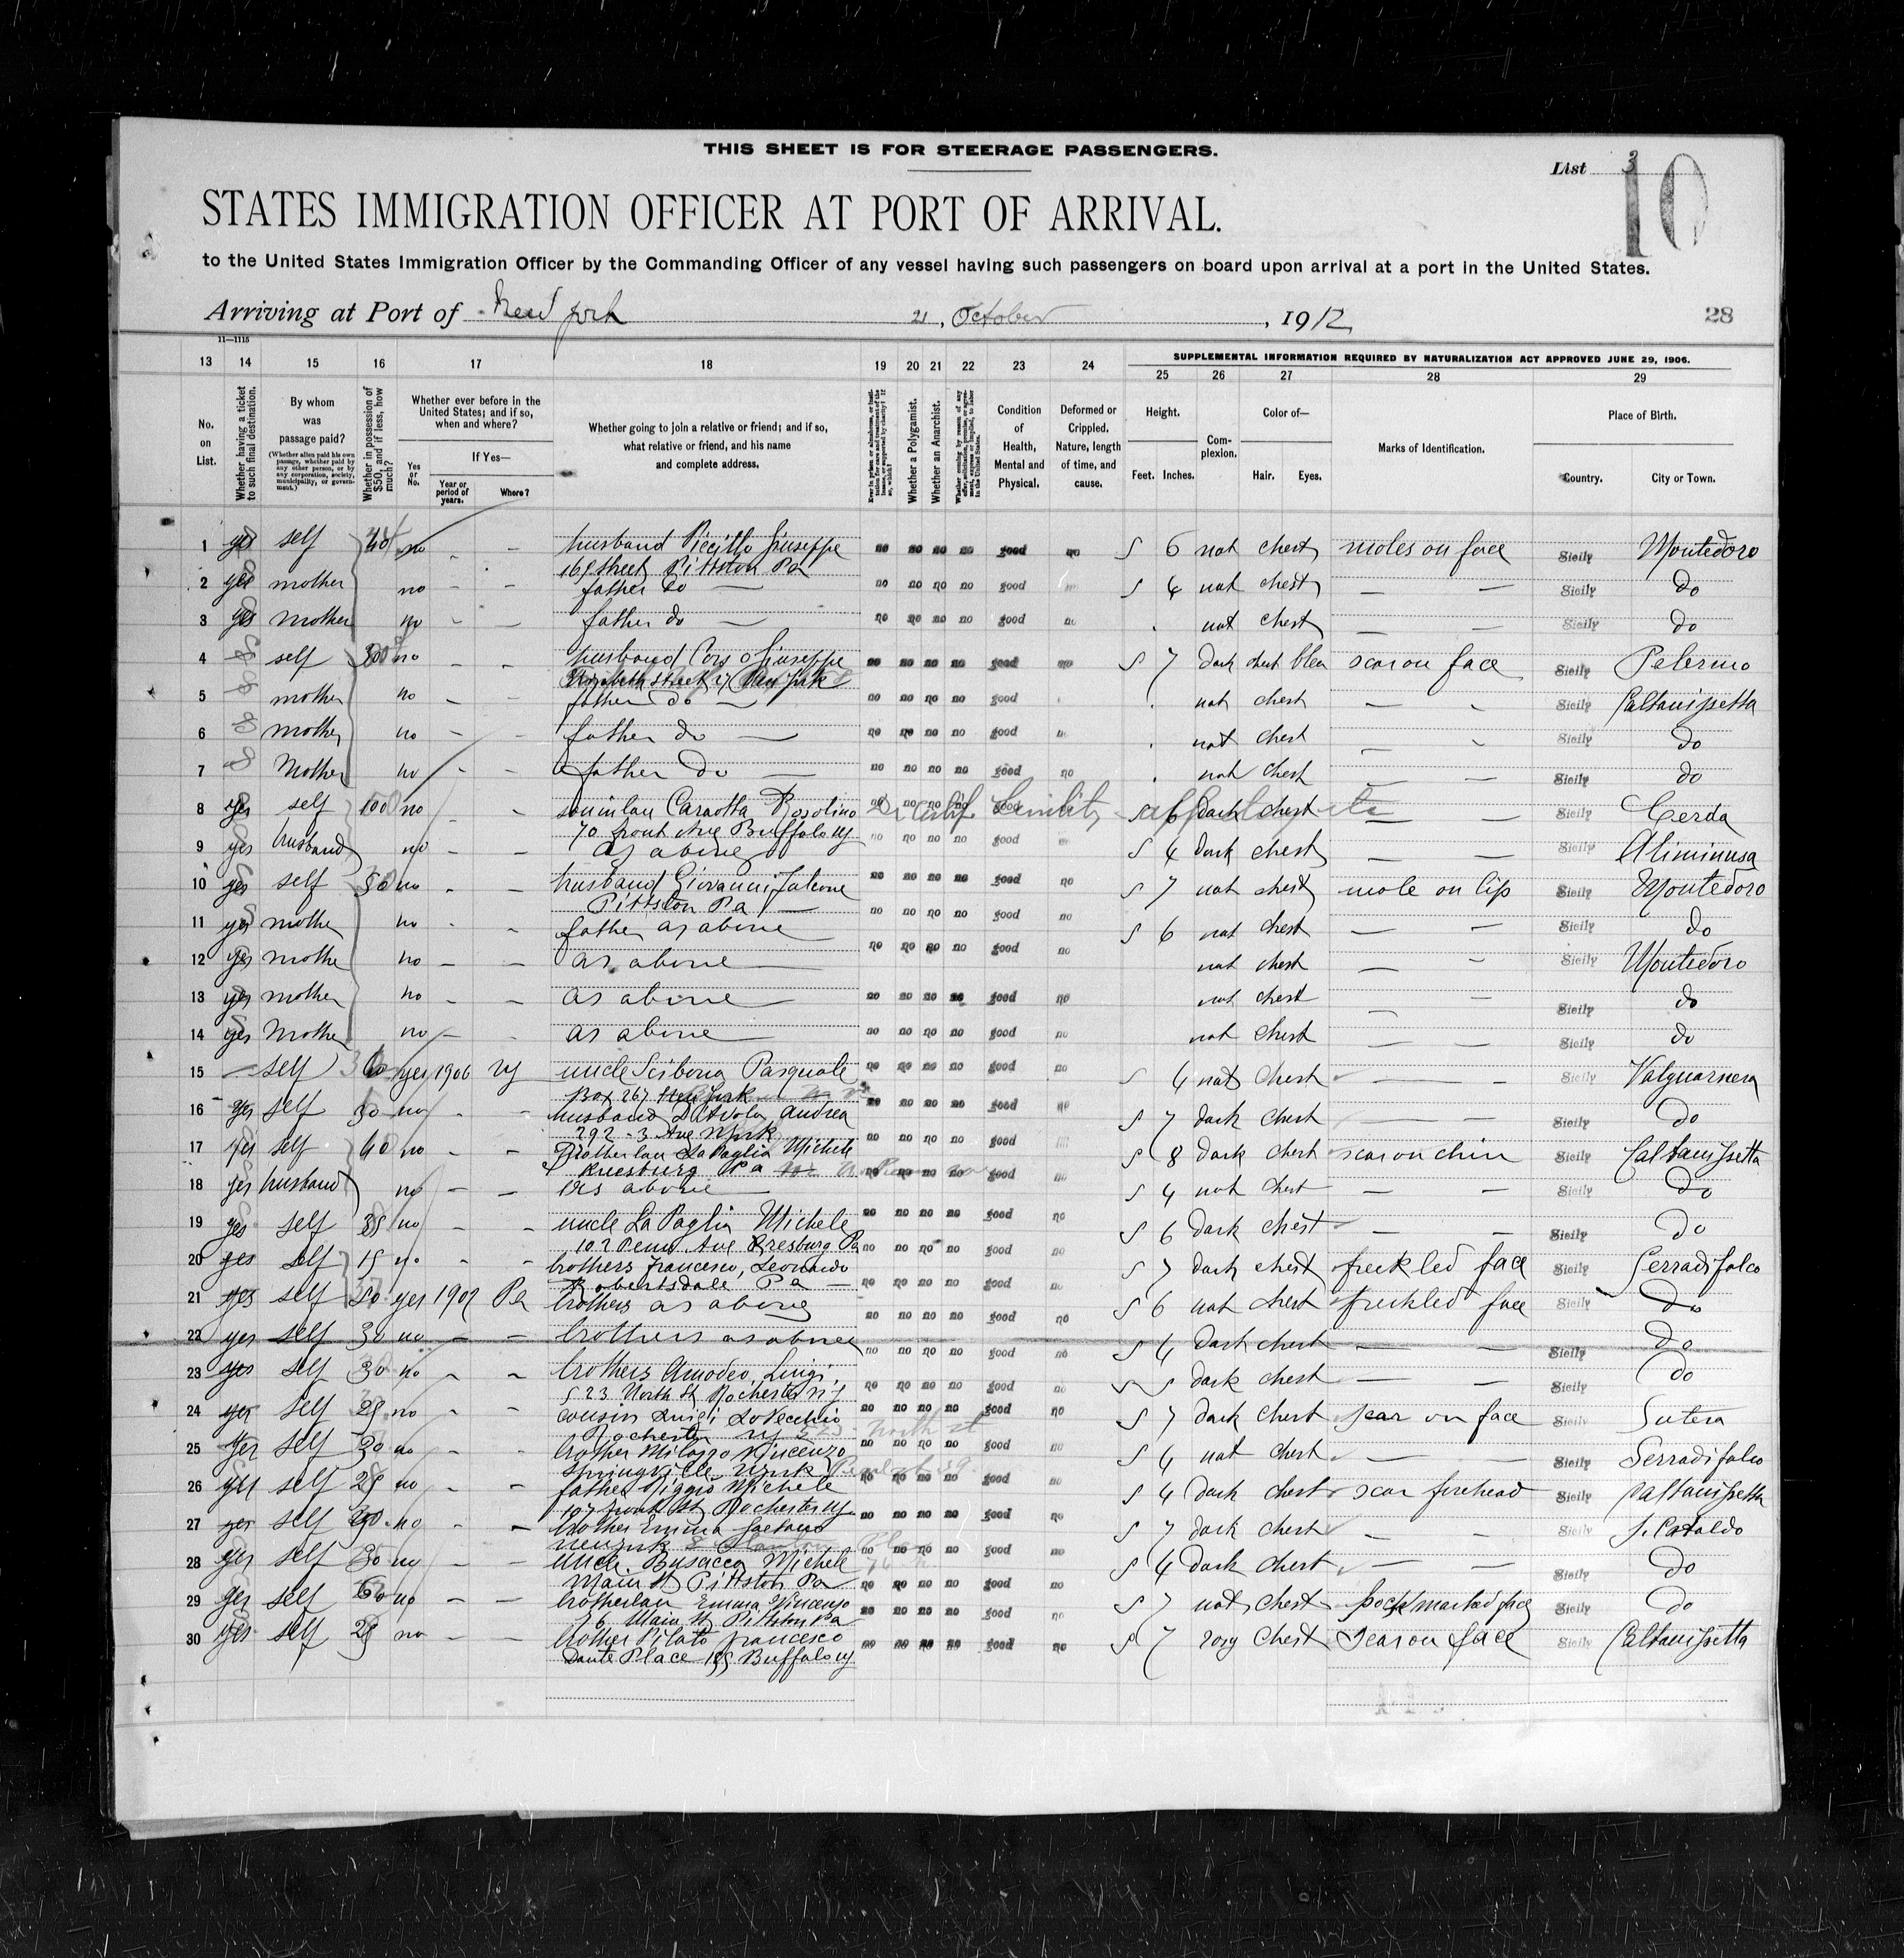 THIS SHEET IS FOR STEERAGE PASSENGERS.
List 3
10
STATES IMMIGRATION OFFICER AT PORT OF ARRIVAL.
to the United States Immigration Officer by the Commanding Officer of any vessel having such passengers on board upon arrival at a port in the United States.
Arriving at Port of New York 21, October, 1912
28
11—1115
SUPPLEMENTAL INFORMATION REQUIRED BY NATURALIZATION ACT APPROVED JUNE 29, 1906.
13 14 15 16 17 18 19 20 21 22 23 24 25 26 27 28 29
No. on List.
Whether having a ticket to such final destination.
By whom was passage paid?
(Whether alien paid his own passage, whether paid by any other person, or by any corporation, society, municipality, or government.)
Whether in possession of $50, and if less, how much?
Whether ever before in the United States; and if so, when and where?
Yes or No.
If Yes—
Year or period of years.
Where?
Whether going to join a relative or friend; and if so, what relative or friend, and his name and complete address.
Whether a Polygamist.
Whether an Anarchist.
Condition of Health, Mental and Physical.
Deformed or Crippled. Nature, length of time, and cause.
Height.
Feet. Inches.
Complexion.
Color of—
Hair. Eyes.
Marks of Identification.
Place of Birth.
Country. City or Town.
1 yes self 40 no - - husband Piccillo Giuseppe no no no no good no 5 6 nat chest moles on face Sicily Montedoro
Street Pittston Pa
2 yes mother no - - father do — no no no no good 5 4 nat chest — — Sicily do
3 yes mother no - - father do — no no no no good no nat chest — — Sicily do
4 self no - - husband Giuseppe no no no no good no 5 7 dark chest scar on face Sicily Palermo
Elizabeth Street New York
5 mother no - father do — no no no no good nat chest — - Sicily Caltanissetta
6 mother no - - father do — no no no no good nat chest — - Sicily do
7 Mother no - - father do — no no no no good no nat chest — — Sicily do
8 yes self 100 no - Rosolino no no no no good 5 6 dark chest — — Sicily Cerda
70 front Ave Buffalo NY
9 yes husband no - - as above no no no no good 5 4 dark chest — — Sicily Aliminusa
10 yes self 50 no - - husband Giovanni Falcone no no no no good no 5 7 nat chest mole on lip Sicily Montedoro
Pittston Pa —
11 yes mother no - father as above no no no no good no 5 6 nat chest — — Sicily do
12 yes mother no - - as above no no no no good no nat chest — — Sicily Montedoro
13 yes mother no - - as above no no no no good no nat chest — Sicily do
14 yes Mother no — as above no no no no good no nat chest — — Sicily do
15 — self yes 1906 NY uncle Scibona Pasquale no no no no good no 5 4 nat chest — — Sicily Valguarnera
Box 267 New York
16 yes self 30 no - - husband Andrea no no no no good no 5 7 dark chest — — Sicily do
292 - 3 Ave
17 yes self 40 no - - La Paglia Michele no no no no good 5 8 dark chest scar on chin Sicily Caltanissetta
Pa
18 yes husband no — — as above no no no no good no 5 4 nat chest — — Sicily do
19 yes self 35 no - - uncle La Paglia Michele no no no no good no 5 6 dark chest — — Sicily do
102 Penn Ave Pa
20 yes self 15 no - - brothers Francesco, Leonardo no no no no good no 5 7 dark chest freckled face Sicily Serradifalco
Robertsdale Pa —
21 yes self 50 yes 1907 Pa brothers as above no no no no good no 5 6 nat chest freckled face Sicily do
22 yes self 30 no — — brothers as above no no no no good no 5 4 dark chest — — Sicily do
23 yes self 30 no - - brothers Amodeo, Luigi, no no no no good no 5 5 dark chest — — Sicily do
523 North St Rochester NY
24 yes self 25 no - - cousin Luigi LoVecchio no no no no good no 5 7 dark chest scar on face Sicily Sutera
Rochester NY North St
25 yes self 30 no - - brother Milazzo Vincenzo no no no no good no 5 4 nat chest — — Sicily Serradifalco
Springville
26 yes self 25 no - - father Michele no no no no good no 5 4 dark chest scar forehead Sicily Caltanissetta
107 front St Rochester NY
27 yes self no - - brother Emma Gaetano no no no no good no 5 7 dark chest — — Sicily S. Cataldo
28 yes self 30 no - - uncle Busacca Michele no no no no good no 5 4 dark chest — — Sicily do
Main St Pittston Pa
29 yes self 60 no — — Emma Vincenzo no no no no good no 5 7 nat chest pock marked face Sicily do
76 Main St Pittston Pa
30 yes self 25 no — — brother Pilato Francesco no no no no good no 5 7 rosy chest scar on face Sicily Caltanissetta
Dante Place Buffalo NY